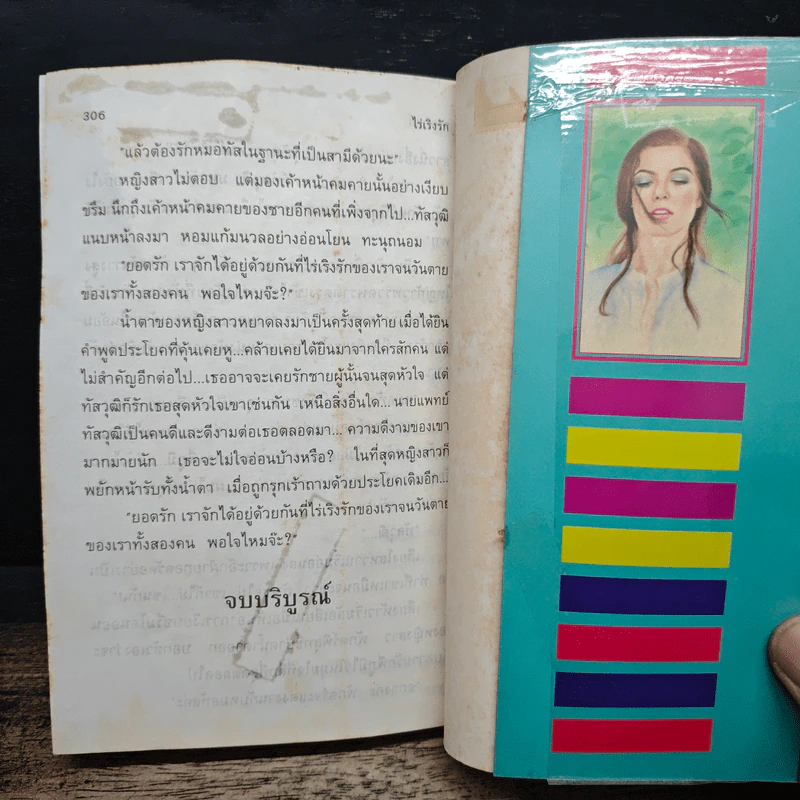 306
ไร่เริงรัก
"แล้วต้องรักหมอทัสในฐานะที่เป็นสามีด้วยนะ"
หญิงสาวไม่ตอบ แต่มองเค้าหน้าคมคายนั้นอย่างเงียบ
ขรึม นึกถึงเค้าหน้าคมคายของชายอีกคนที่เพิ่งจากไป...ทัสวุฒิ
แนบหน้าลงมา หอมแก้มนวลอย่างอ่อนโยน ทะนุถนอม
"ยอดรัก เราจักได้อยู่ด้วยกันที่ไร่เริงรักของเราจนวันตาย
ของเราทั้งสองคน พอใจไหมจ๊ะ?"
น้ำตาของหญิงสาวหยาดลงมาเป็นครั้งสุดท้าย เมื่อได้ยิน
คำพูดประโยคที่คุ้นเคยหู...คล้ายเคยได้ยินมาจากใครสักคน แต่
ไม่สำคัญอีกต่อไป...เธออาจจะเคยรักชายผู้นั้นจนสุดหัวใจ แต่
ทัสวุฒิก็รักเธอสุดหัวใจเขาเช่นกัน เหนือสิ่งอื่นใด... นายแพทย์
ทัสวุฒิเป็นคนดีและดีงามต่อเธอตลอดมา... ความดีงามของเขา
มากมายนัก เธอจะไม่ใจอ่อนบ้างหรือ? ในที่สุดหญิงสาวก็
พยักหน้ารับทั้งน้ำตา เมื่อถูกรุกเร้าถามด้วยประโยคเดิมอีก...
"ยอดรัก เราจักได้อยู่ด้วยกันที่ไร่เริงรักของเราจนวันตาย
ของเราทั้งสองคน พอใจไหมจ๊ะ?"
จบบริบูรณ์